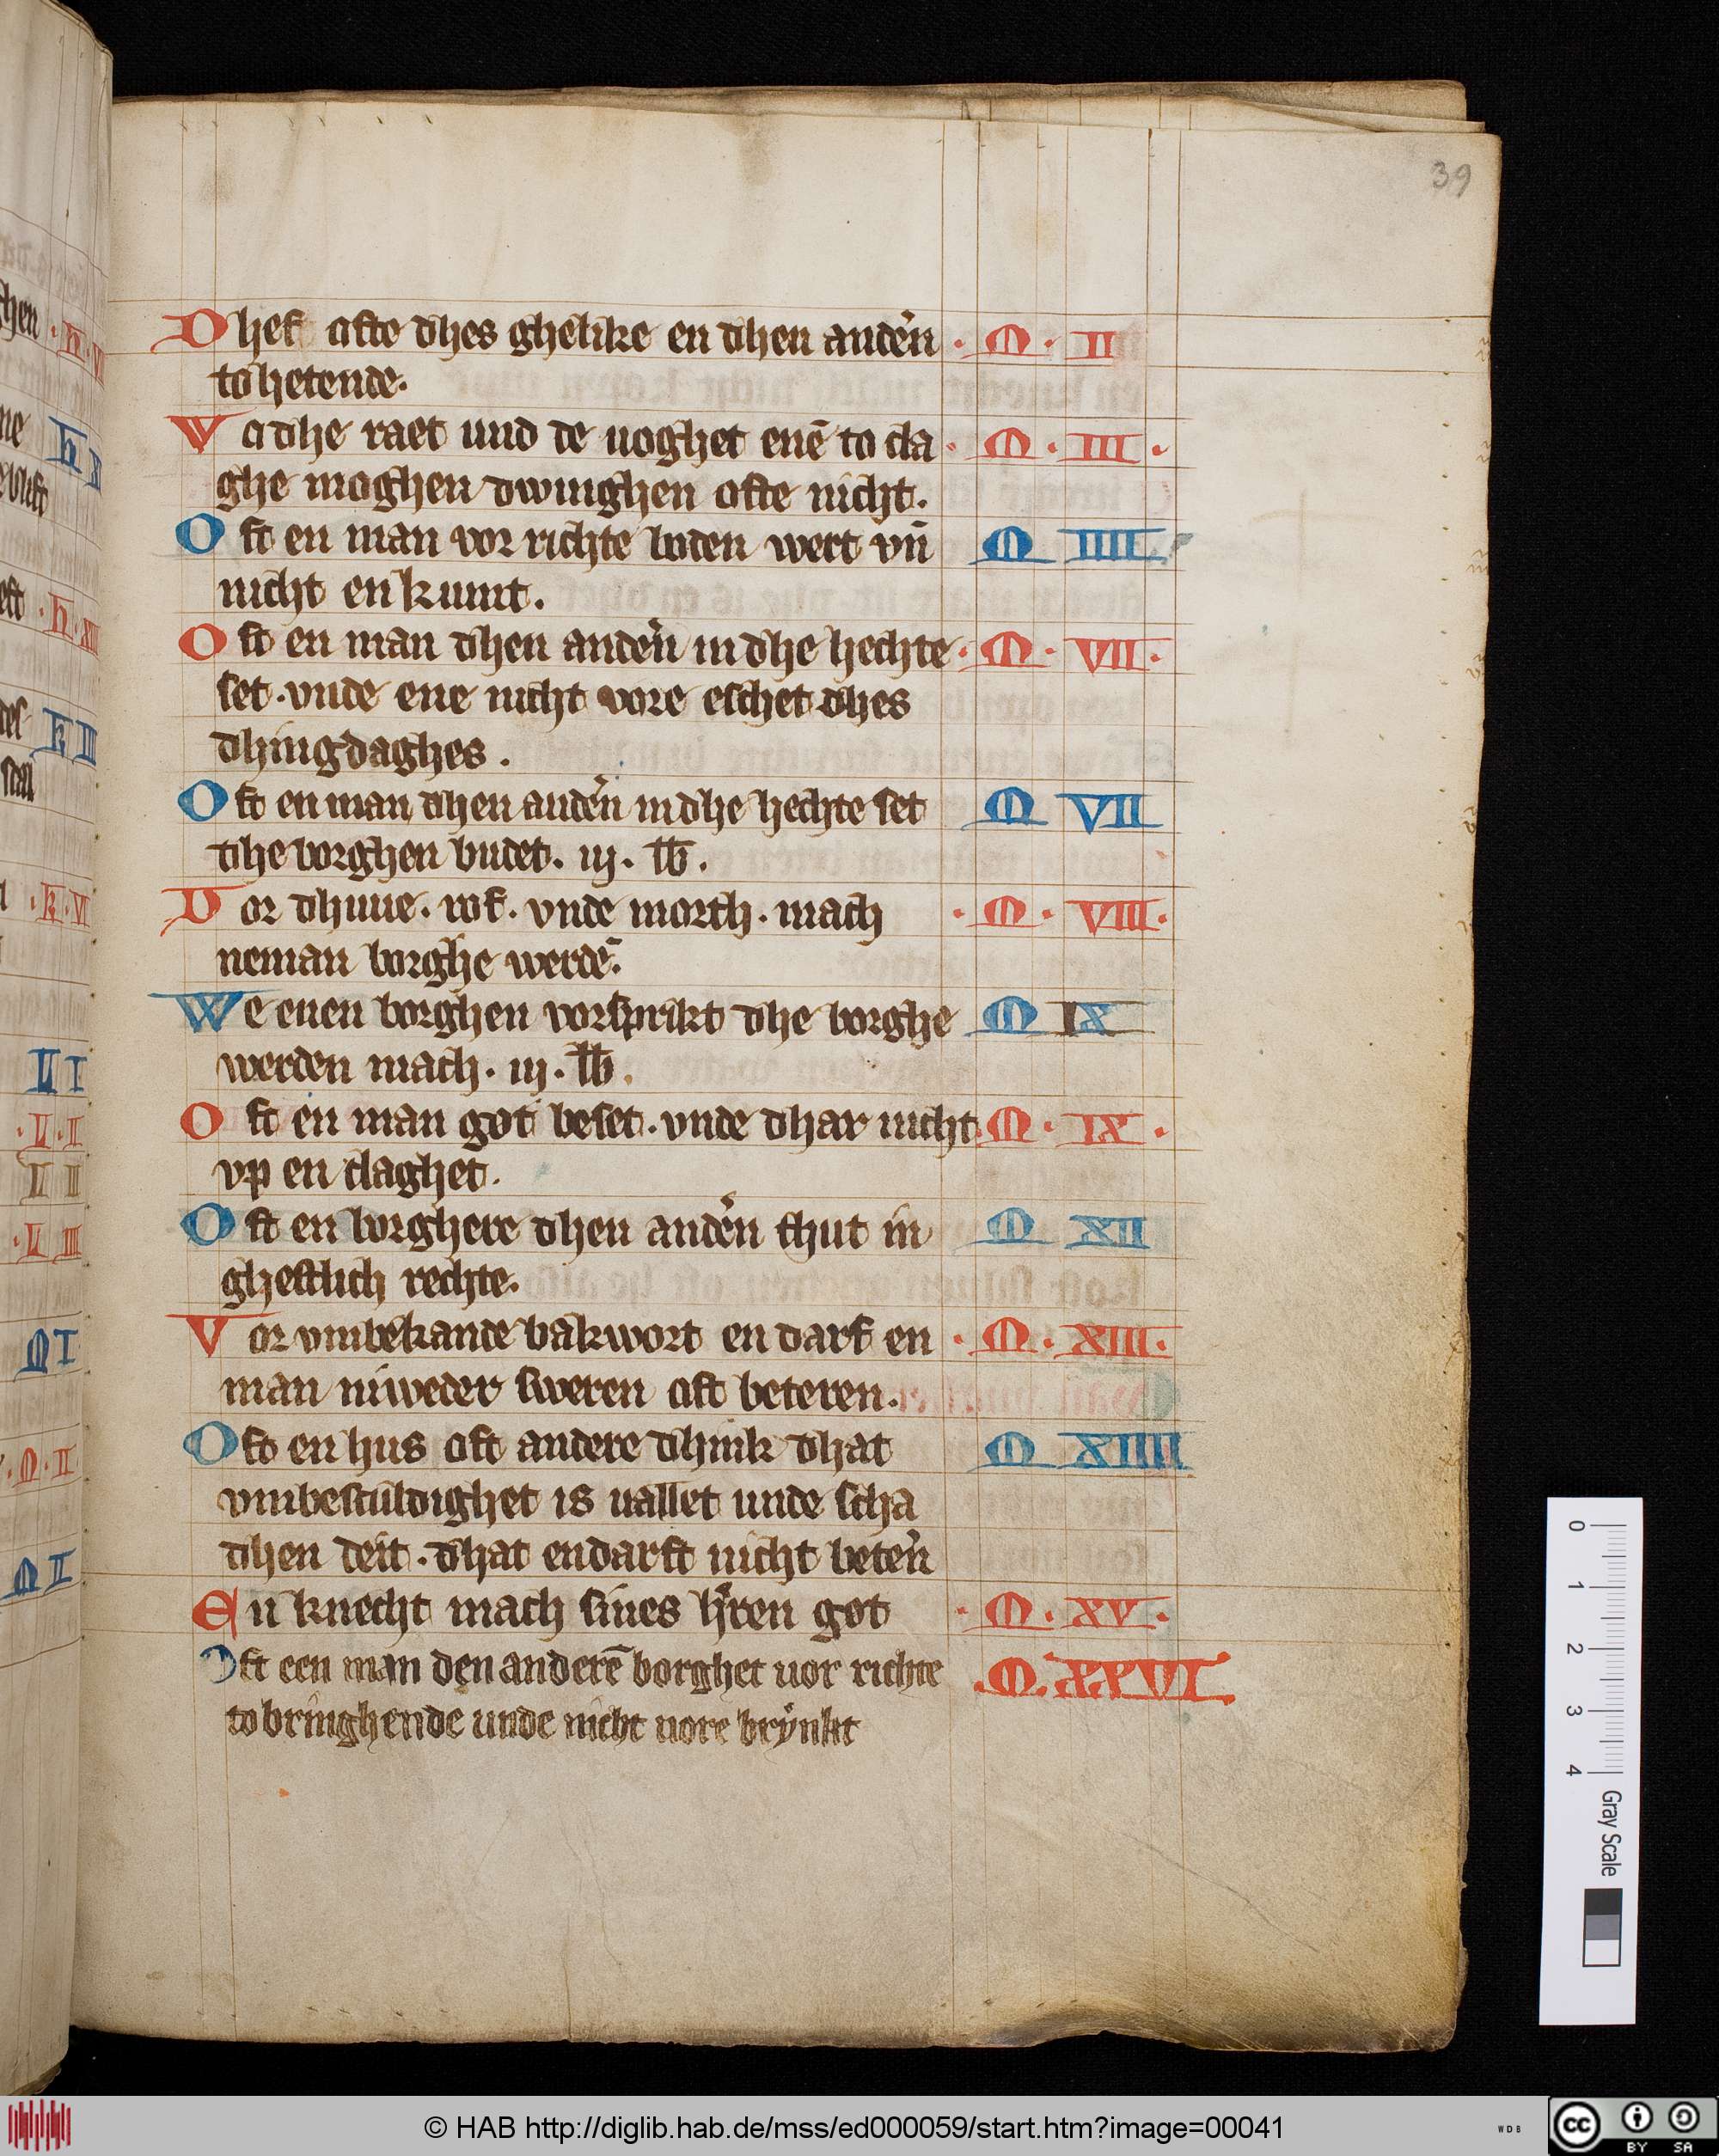 39
Dhef ofte dhes ghelike en dhen andẽn · M · II
to hetende.
Va dhe raet und de uoghet enē to cla · M · III ·
ghe moghen dwinghen ofte nicht.
Oft en man vor richte luden wert vn̄ M IIII
nicht en kumt.
Oft en man dhen andẽn in dhe hechte · M · VII ·
set · vnde ene nicht vore eschet dhes
dhingdaghes.
Oft en man dhen andẽn in dhe hechte set M VII
dhe borghen budet. iij. lb.
Vor dhuue. rof. vnde morth. mach · M · VIII ·
neman borghe werdē.
We enen borghen vorsprikt dhe borghe M IX
werden mach. iij. lb.
Oft en man got beset. vnde dhar nicht M · IX ·
vp en claghet.
Oft en borghere dhen andẽn thut in M XII
ghestlich rechte.
Vor vmbekande bakwort en darf en · M · XIII ·
man niweder sweren oft beteren.
Oft en hus oft andere dhink dhat M XIIII
vmbesculdighet is uallet unde scha
dhen deit. dhat endarft nicht betẽn
En knecht mach sines hẽren got · M · XV ·
Oft een man den anderē borghet uor richte . M . XXVI .
to bringhende unde nicht uore brẏnkt
h XII
k III
k VI
L I
L I
L II
L III
M I
M II
M II
0 1 2 3 4 Gray Scale
© HAB http://diglib.hab.de/mss/ed000059/start.htm?image=00041
WDB
cc BY SA